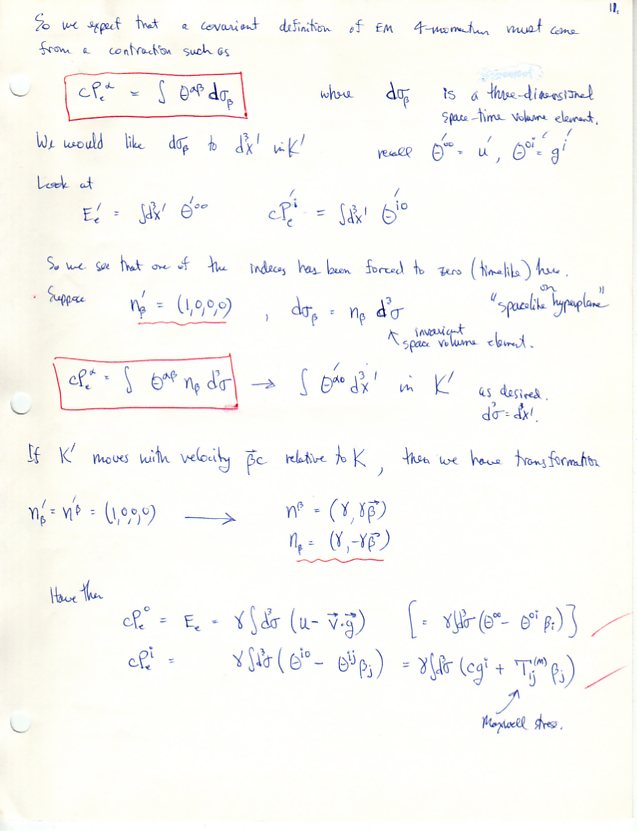 18.
So we expect that a covariant definition of EM 4-momentum must come
from a contraction such as
cPₑ^α = ∫ Θ^αβ dσ_β where dσ_β is a three-dimensional
space-time volume element.
We would like dσ_β to d³x' in K' recall Θ'^00 = u', Θ'^0i = g'^i
Look at
Eₑ' = ∫d³x' Θ'^00 cPₑ'^i = ∫d³x' Θ'^i0
So we see that one of the indeces has been forced to zero (timelike) here.
Suppose n'_β = (1,0,0,0) , dσ_β = n_β d³σ on "spacelike hyperplane"
invariant
space volume element.
cPₑ^α = ∫ Θ^αβ n_β d³σ → ∫ Θ'^α0 d³x' in K' as desired.
d³σ = d³x'.
If K' moves with velocity β⃗c relative to K, then we have transformation
n'_β = n'^β = (1,0,0,0) → n^β = (γ, γβ⃗)
n_β = (γ, -γβ⃗)
Have then
cPₑ^0 = Eₑ = γ∫d³σ (u - v⃗·g⃗) [= γ∫d³σ (Θ^00 - Θ^0i β_i)}
cPₑ^i = γ∫d³σ (Θ^i0 - Θ^ij β_j) = γ∫d³σ (cg^i + T_ij^(M) β_j)
Maxwell stress.